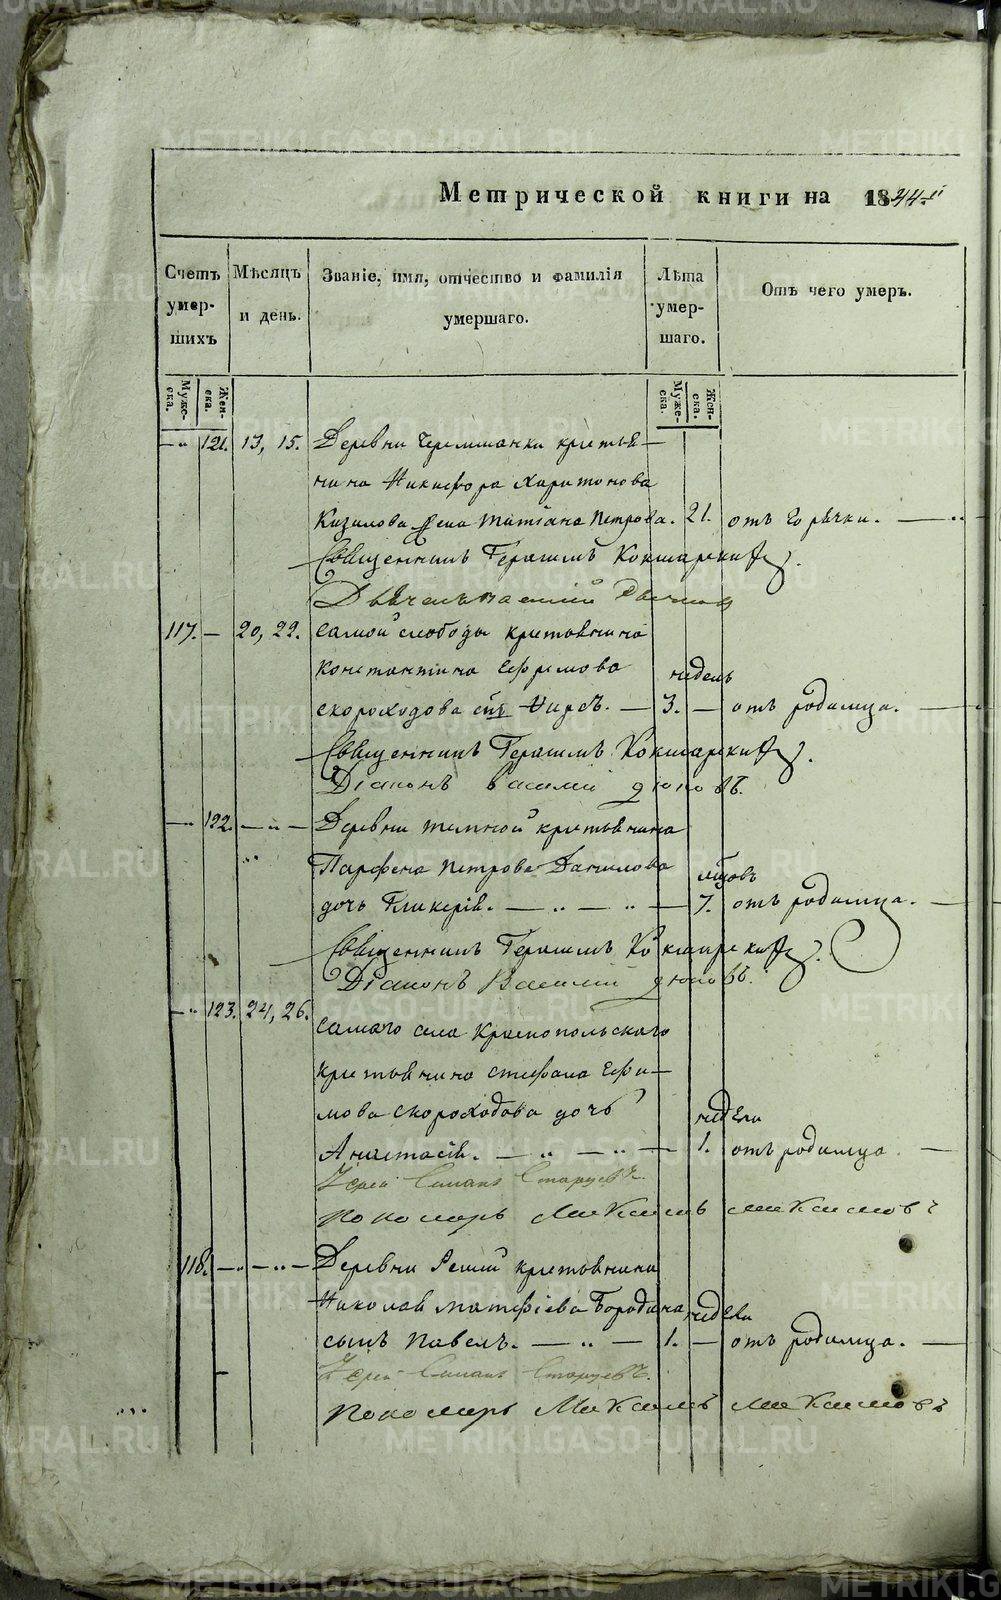 Метрической книги на 1844й
Счетъ умер- шихъ
Мѣсяцъ и день.
Званіе, имя, отчество и фамилія умершаго.
Лѣта умер- шаго.
Отъ чего умеръ.
Муже- ска.
Жен- ска.
Муже- ска.
Жен- ска.
121. 13, 15. Деревни Черемшанки крестья-
нина Никифора Харитонова
Кизилова жена Татіана Петрова. 21. отъ горячки.
Священникъ Герасимъ Кокшарскій.
117. 20, 22. Самой слободы крестьянина
Константина Ефремова недель
Скороходова сынъ Киръ. 3. отъ родимца.
Священникъ Герасимъ Кокшарскій.
Діаконъ Василій
122. Деревни Темной крестьянина
Парфена Петрова Данилова мѣсяцовъ
дочь Гликерія. 7. отъ родимца.
Священникъ Герасимъ Кокшарскій.
Діаконъ Василій
123. 24, 26. Самаго села Краснопольскаго
крестьянина Стефана Ефи-
мова Скороходова дочь недели
Анастасія. 1. отъ родимца.
Іерей Старцевъ.
Пономарь Максимъ Максимовъ
118. Деревни Реши крестьянина
Николая Матфіева Бородина недели
сынъ Павелъ. 1. отъ родимца.
Іерей Старцевъ.
Пономарь Максимъ Максимовъ
METRIKI.GASO-URAL.RU